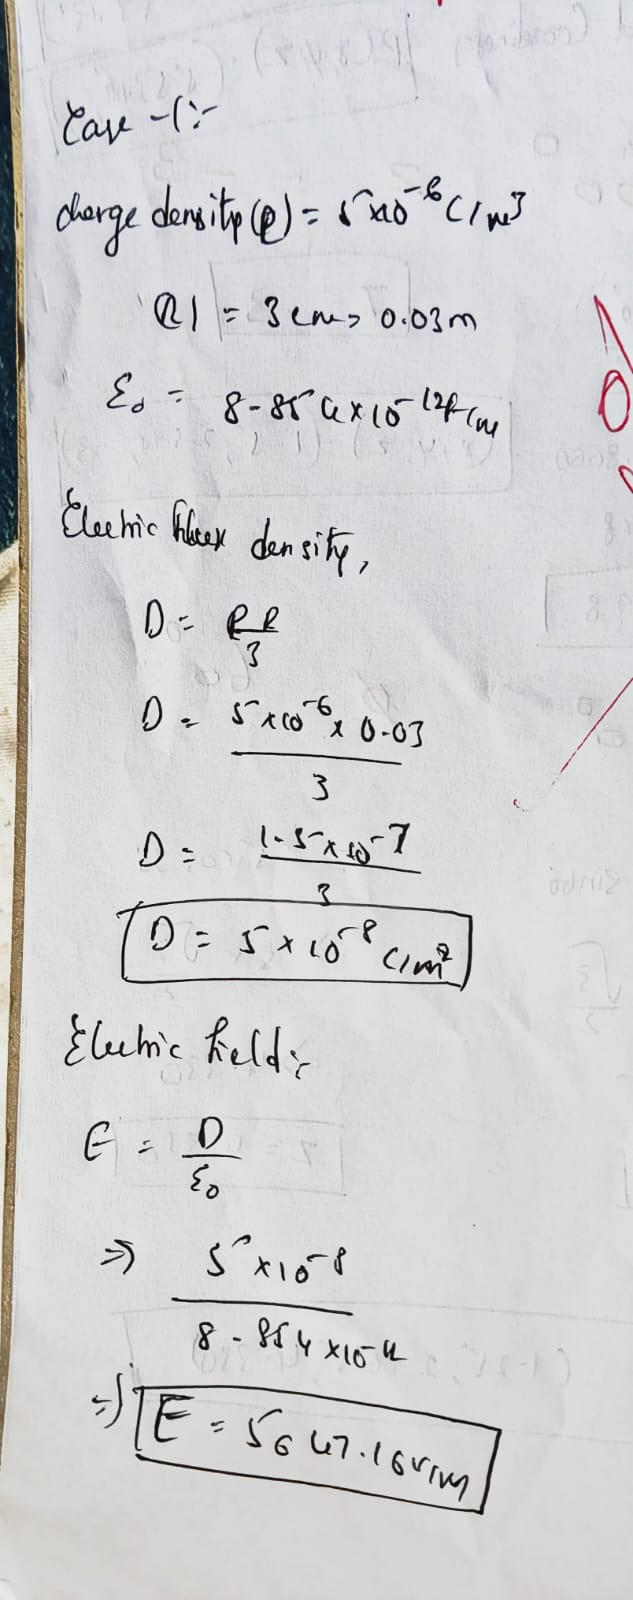 Case -1:-
charge density (ρ) = 5x10^-6 C/m^3
R1 = 3 cm = 0.03m
ε0 = 8.854x10^-12 F/m
Electric flux density,
D = ρR/3
D = 5x10^-6 x 0.03/3
D = 1.5x10^-7/3
D = 5x10^-8 C/m^2
Electric field:-
E = D/ε0
=> 5x10^-8/8.854x10^-12
=> E = 5647.16 V/m